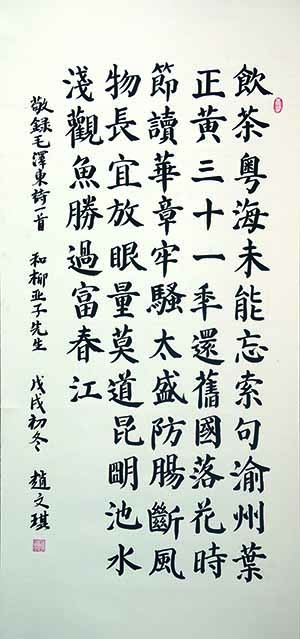 飲茶粵海未能忘索句渝州葉
正黃三十一年還舊國落花時
節讀華章牢騷太盛防腸斷風
物長宜放眼量莫道昆明池水
淺觀魚勝過富春江
敬録毛澤東詩一首 和柳亚子先生 戊戌初冬 趙文琪